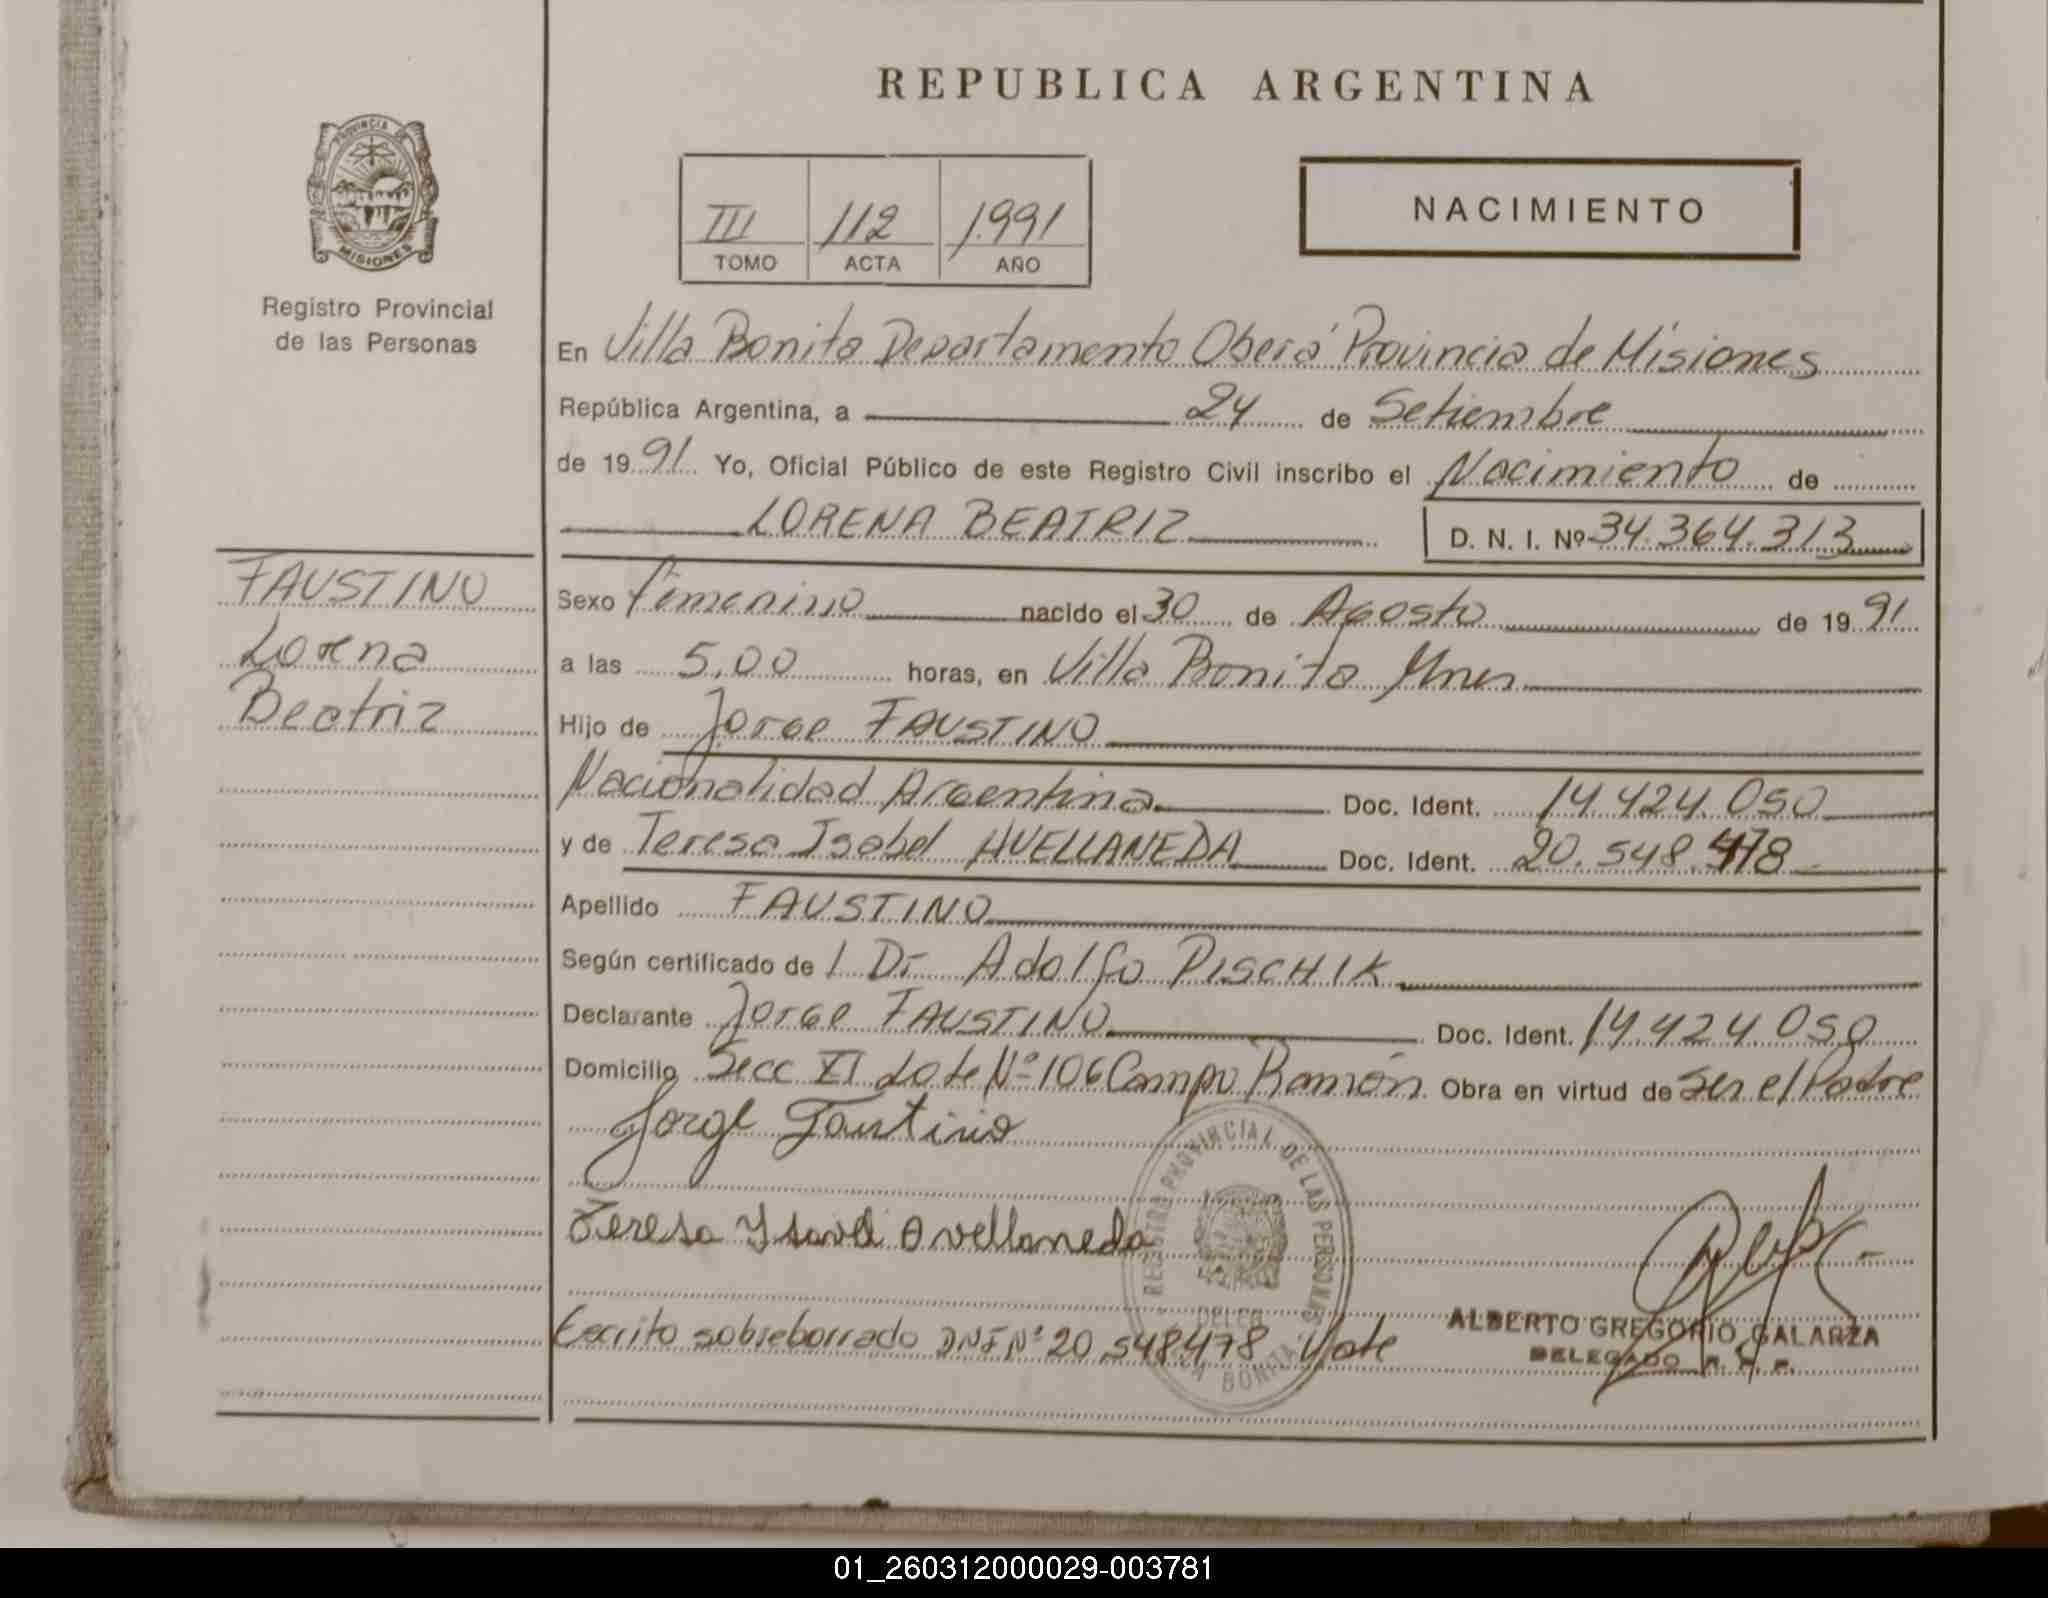 REPUBLICA ARGENTINA
PROVINCIA DE
MISIONES
Registro Provincial
de las Personas
III 112 1.991
TOMO ACTA AÑO
NACIMIENTO
En Villa Bonita Departamento Oberá Provincia de Misiones
República Argentina, a 24 de Setiembre
de 1991 Yo, Oficial Público de este Registro Civil inscribo el Nacimiento de
LORENA BEATRIZ D. N. I. Nº 34.364.313
FAUSTINO
Lorena
Beatriz
Sexo femenino nacido el 30 de Agosto de 1991
a las 5,00 horas, en Villa Bonita Mnes
Hijo de Jorge FAUSTINO
Nacionalidad Argentina Doc. Ident. 14.424.050
y de Teresa Isabel AVELLANEDA Doc. Ident. 20.548.478
Apellido FAUSTINO
Según certificado de / Dr Adolfo PISCHIK
Declarante Jorge FAUSTINO Doc. Ident. 14.424.050
Domicilio Secc XI Lote Nº 106 Campo Ramón Obra en virtud de Ser el Padre
Jorge Faustino
Teresa Ysavel Avellaneda
REGISTRO PROVINCIAL DE LAS PERSONAS
DELEG.
BONITA
Escrito sobreborrado DNI Nº 20.548478 Vale
ALBERTO GREGORIO GALARZA
DELEGADO R. P. P.
01_260312000029-003781